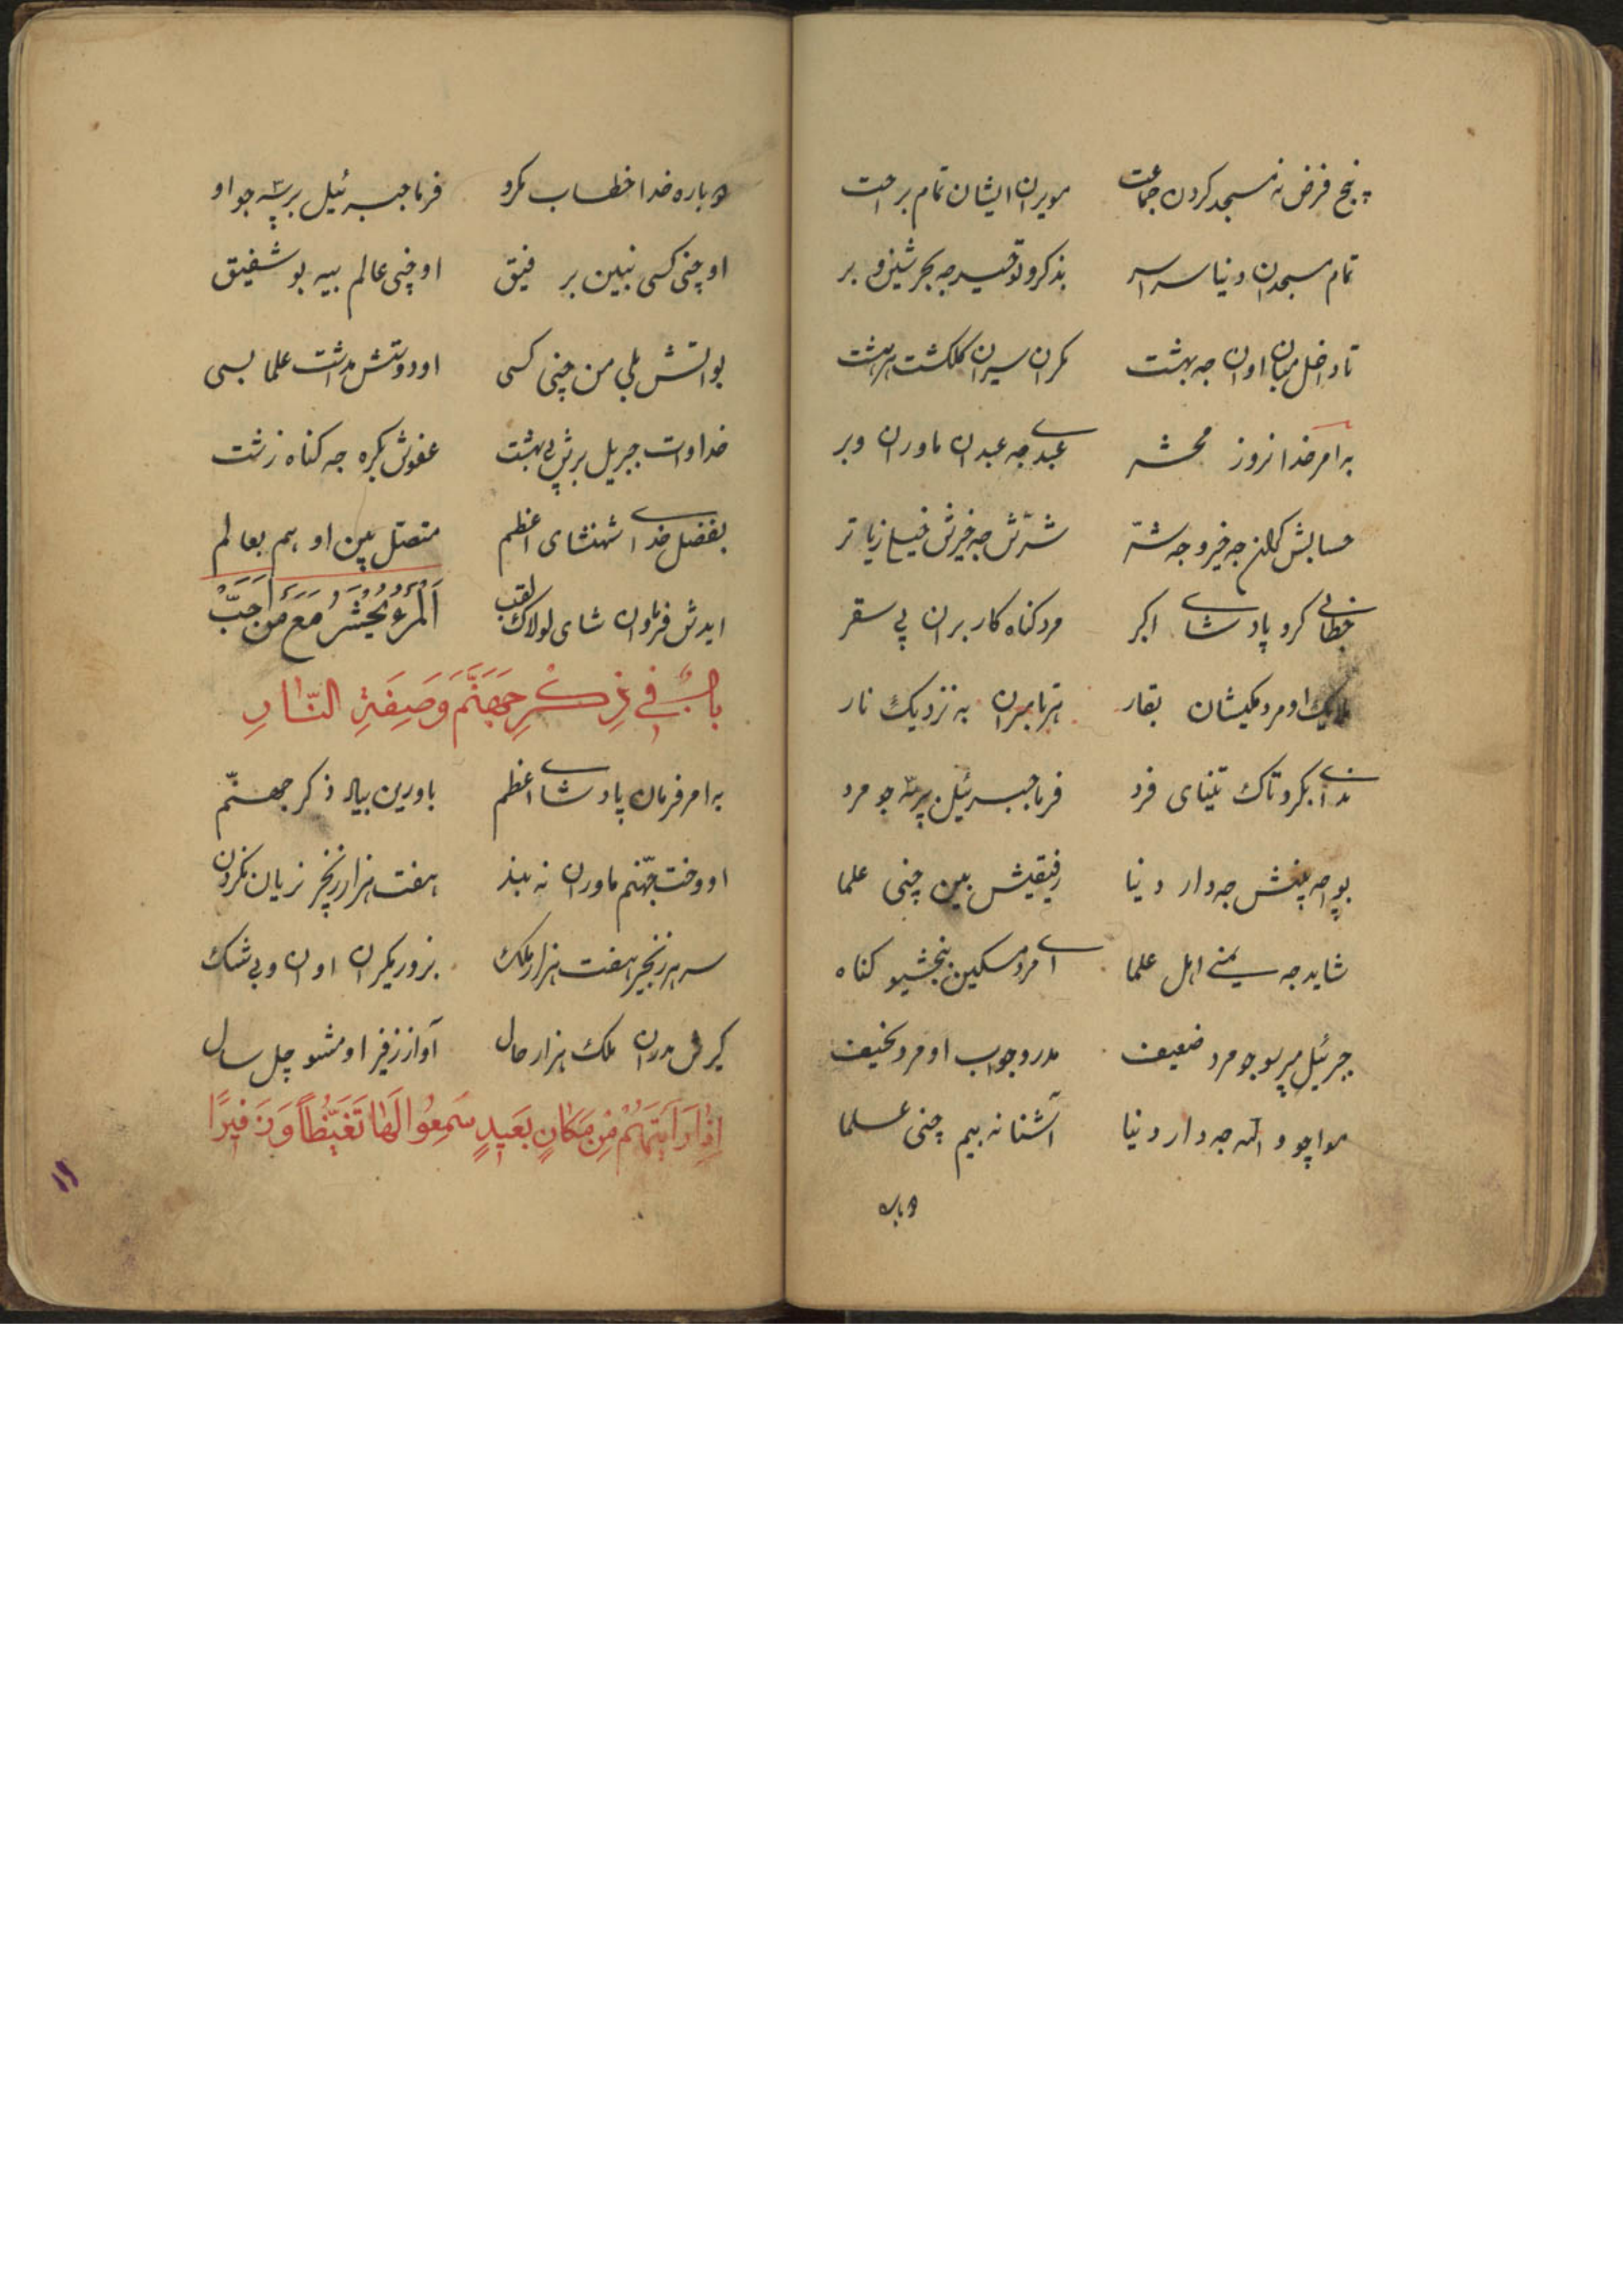 پنج فرض نه مسجد کردن جماعت مویران ایشان تمام براحت
تمام مسجدان دنیا سراسر بذکر و توحید جه بحر شین و بر
تا داخل میبان اوان جه بهشت مکران سیران کلکشت هر هشت
به امر خدا نه روز محشر عبدی جه عبدان ماوران و بر
حسابش کران جه خیر و جه شر شرش جه خیرش خیلی زیاتر
خطابی کرو پادشای اکبر مرد کناه کار بران پی سقر
ملایک او مرد مکیشان بقار تا مبران به نزدیک نار
ندای بکرو تاک تنیای فرد فرما جبرئیل پرسه جو مرد
بواچه پنش جه دار دنیا رفیقیش بین چنی علما
شاید جه یمنی اهل علما ای مرد مسکین بخشیو کناه
جبرئیل مپرسو جو مرد ضعیف مدرو جواب او مرد نحیف
مواچو والله جه دار دنیا آشنا نه بیم چنی علما
دوباره
دوباره خدا خطاب مکرو فرما جبرئیل پرسه جو او
او چنی کسی نبین بر فیق او چنی عالم بیه بو شفیق
بواتش بلی من چنی کسی او دوستش مداشت علما بسی
خدا وات جبریل برش پی بهشت عفوش بکره جه کناه زشت
بفضل خدای شهنشای اعظم متصل بین او هم بعالم
ایدش فرماوان شای لولاک لقب اَلْمَرْءُ یُحْشَرُ مَعَ مَنْ اَحَبَّ
بابٌ فی ذِکْرِ جَهَنَّمَ وَصِفَةِ النّارِ
به امر فرمان پادشای اعظم باورین بیاد ذکر جهنّم
او وخت جهّنم ماوران نه بند هفت هزار زنجیر نریان نکردن
سر هر زنجیر هفت هزار ملک بزور مکیران اوان و بی شک
کیرش مدران ملک هزار حال آواز زفیر او مشو چل سال
اِذا رَاَیْتَهُمْ مِن مَکانٍ بَعیدٍ سَمِعُوا لَها تَغَیُّظاً وَزَفیرًا
۱۱